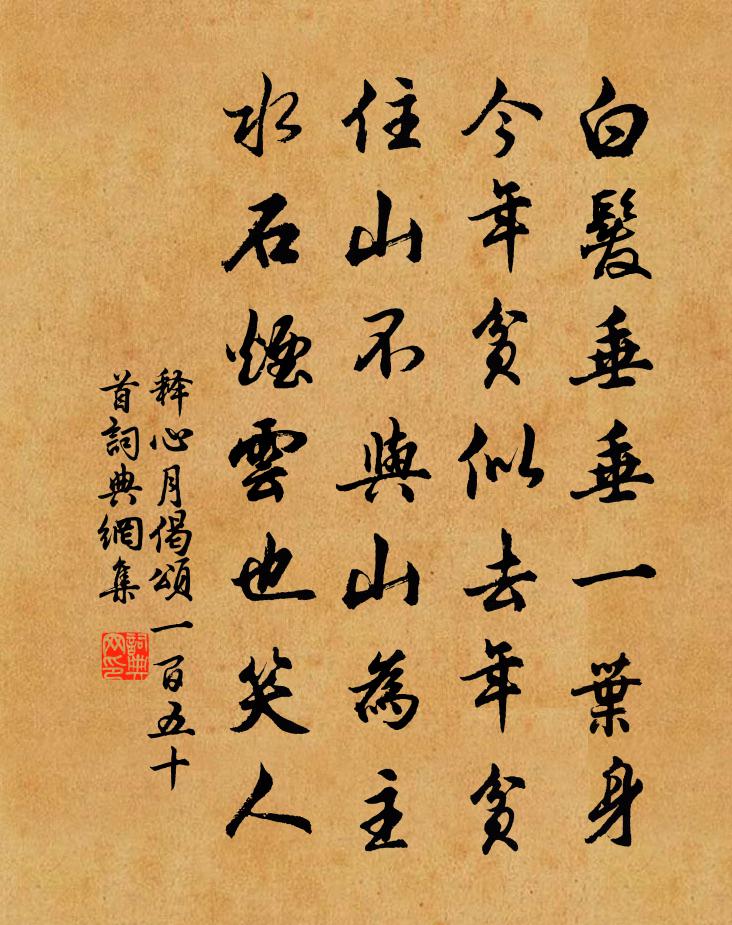 白髮垂垂一葉身
今年貧似去年貧
住山不與山為主
水石煙雲也笑人
释心月偈頌一百五十
首詞典網集
詞典網印